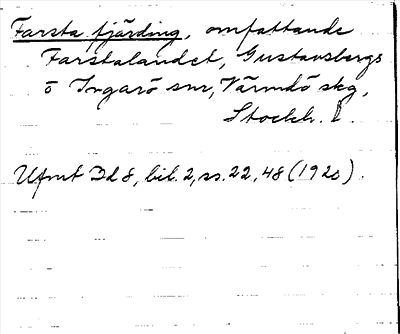 Farsta fjärding, omfattande
Farstalandet, Gustavsbergs
o Ingarö snr, Värmdö skg,
Stockh. l.
Ufmt Bd 8, bil. 2, ss. 22, 48 (1920).